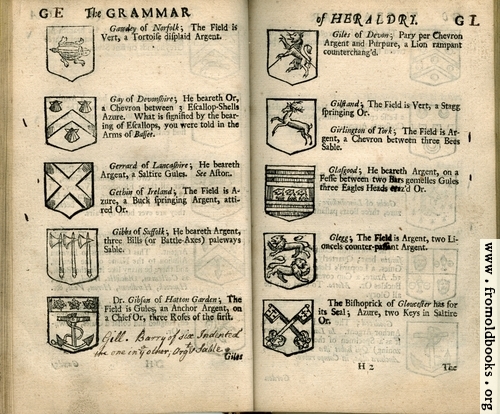 GE The GRAMMAR
Gawdey of Norfolk; The Field is
Vert, a Tortoise displaid Argent.
Gay of Devonshire; He beareth Or,
a Chevron between 3 Escallop-Shells
Azure. What is signified by the bear-
ing of Escallops, you were told in the
Arms of Basset.
Gerrard of Lancashire; He beareth
Argent, a Saltire Gules. See Aston.
Gethin of Ireland; The Field is A-
zure, a Buck springing Argent, atti-
red Or.
Gibbs of Suffolk; He beareth Argent,
three Bills (or Battle-Axes) paleways
Sable.
Dr. Gibson of Hatton Garden; The
Field is Gules, an Anchor Argent, on
a Chief Or, three Roses of the first.
Gill. Barry of six Indented
the one in ye other, Or & Sable
Giles
of HERALDRY. GL
Giles of Devon; Pary per Chevron
Argent and Purpure, a Lion rampant
counterchang'd.
Gilstand; The Field is Vert, a Stagg
springing Or.
Girlington of York; The Field is Ar-
gent, a Chevron between three Bees
Sable.
Glasgood; He beareth Argent, on a
Fesse between two Bars gemelles Gules
three Eagles Heads Or.
Glegg; The Field is Argent, two Li-
oncels counter-passant Argent.
The Bishoprick of Gloucester has for
its Seal; Azure, two Keys in Saltire
Or.
H 2 The
www.fromoldbooks.org